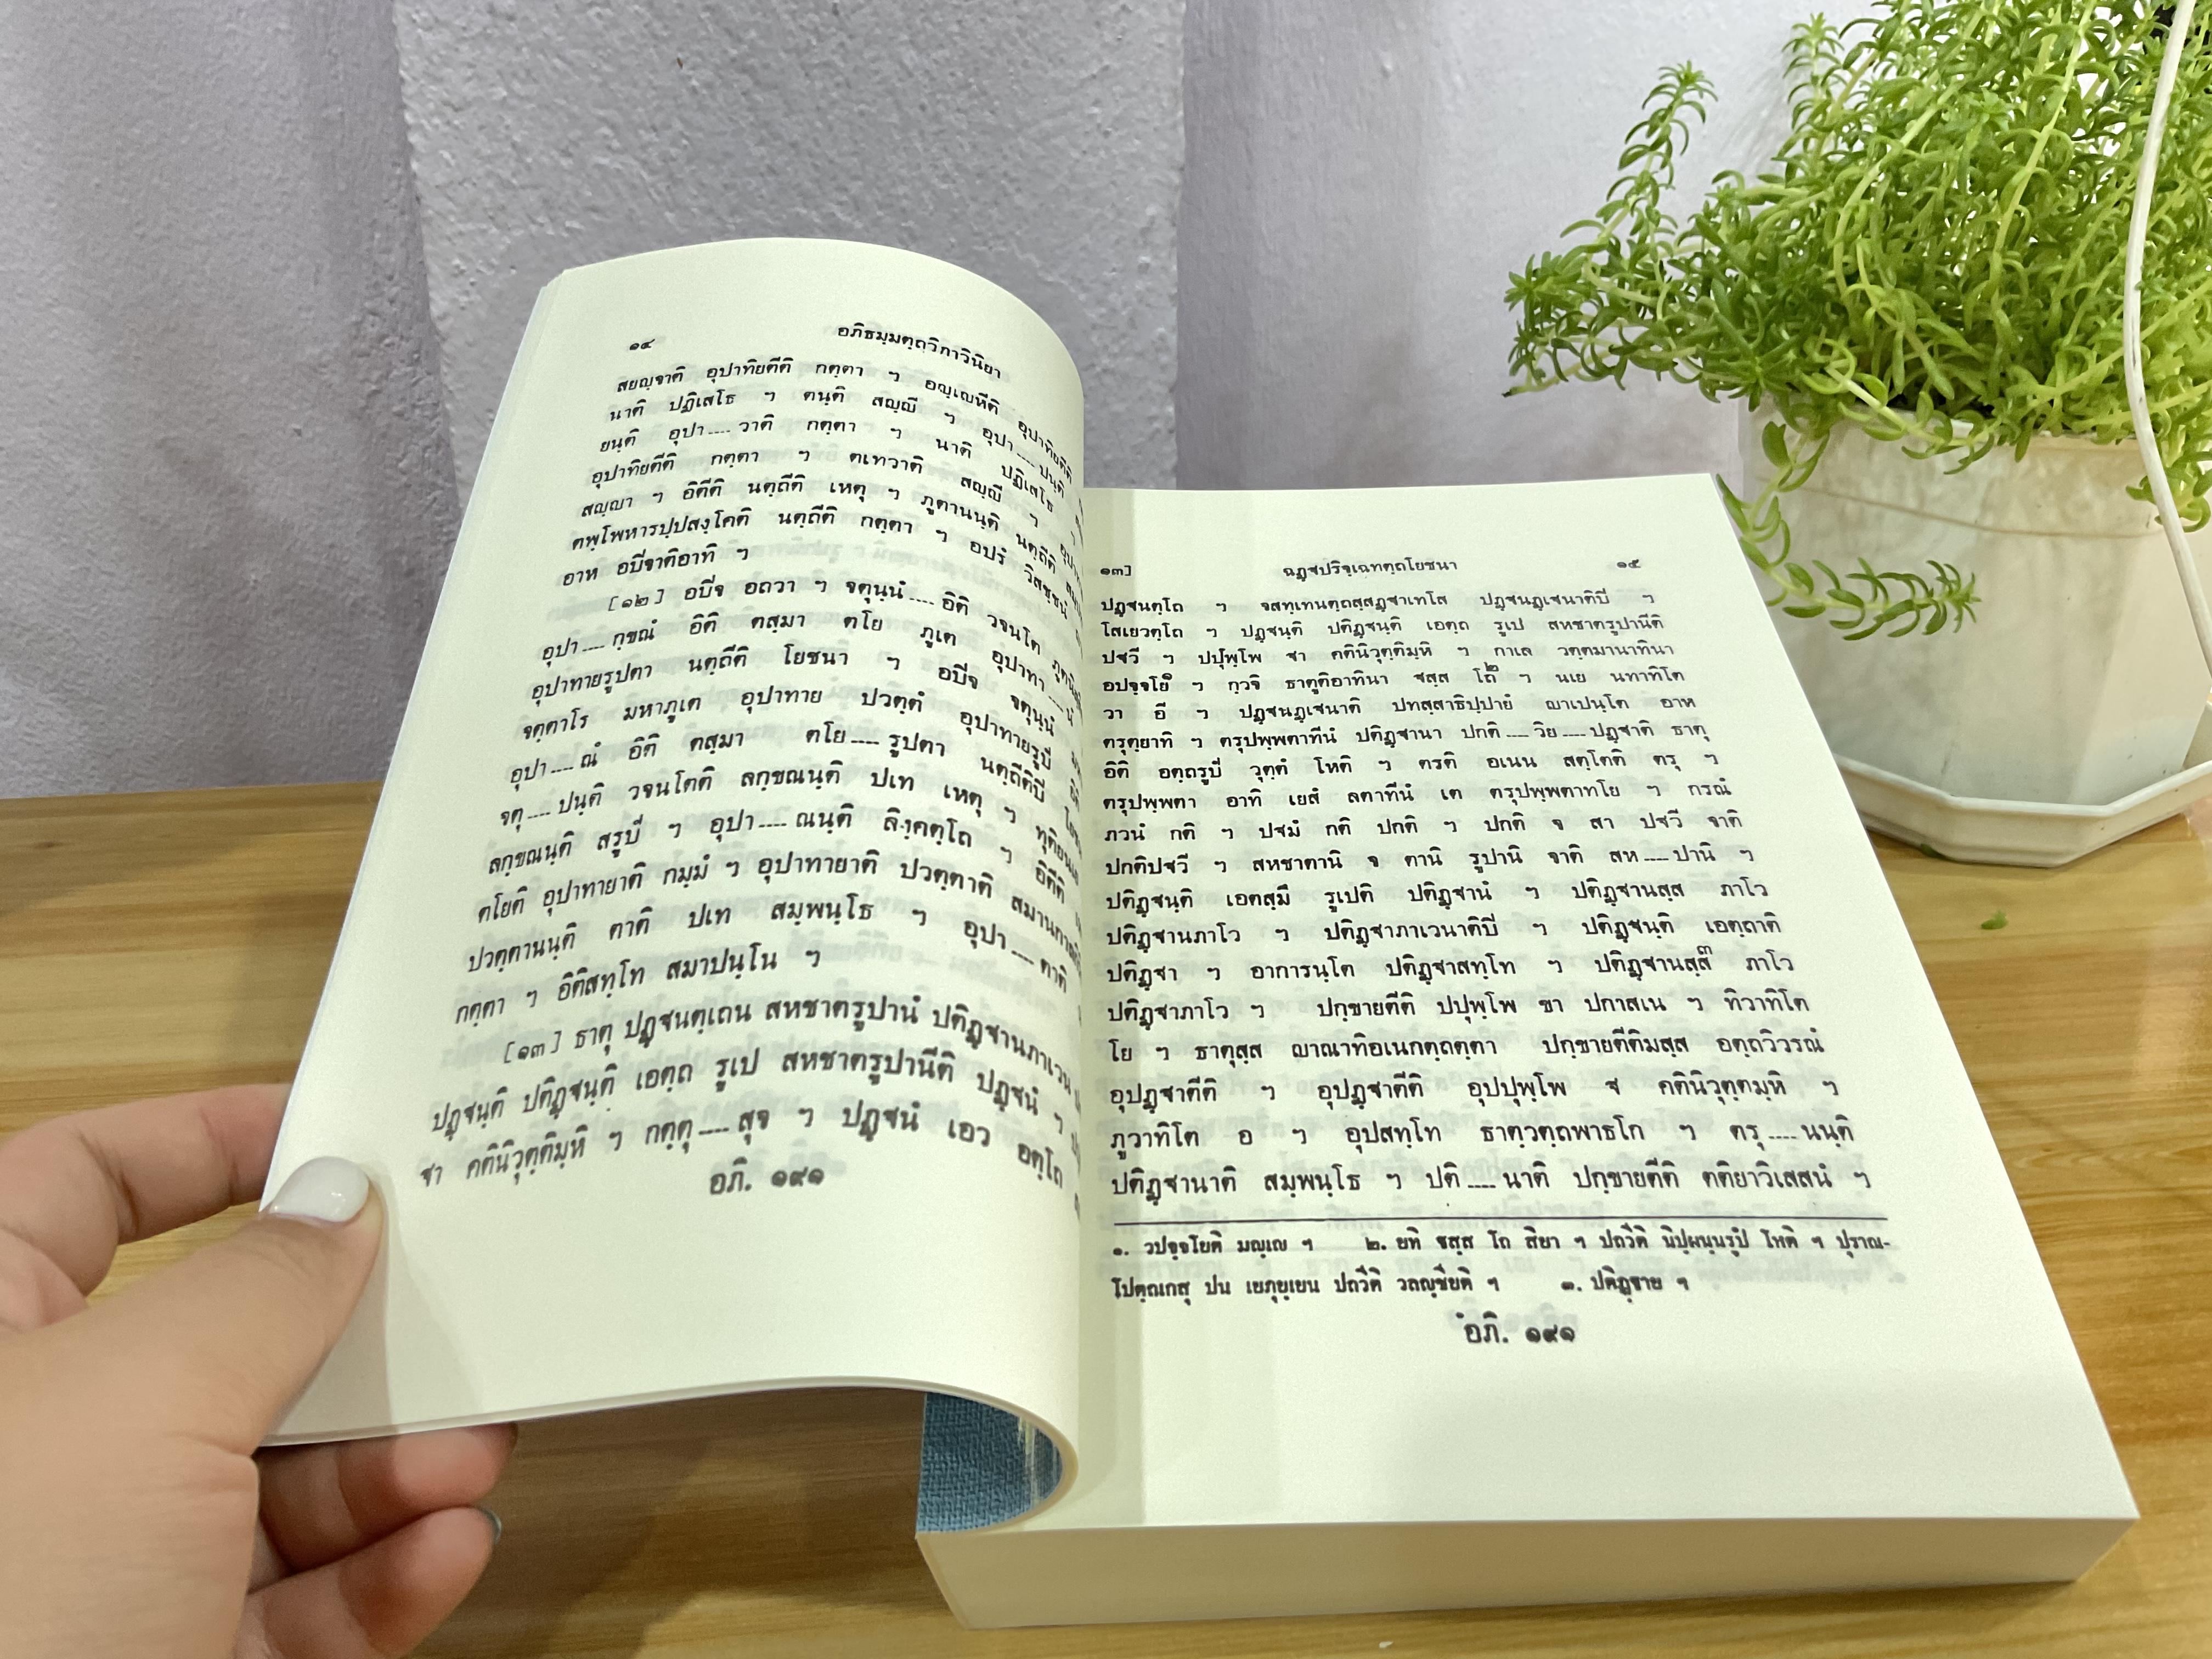 ๑๔ อภิธมฺมตฺถวิภาวินิยา
สยญฺจาติ อุปาทิยตีติ กตฺตา ฯ อญฺเญหีติ อุปาทิยตีติ
นาติ ปฏิเสโธ ฯ ตนฺติ สญฺญี ฯ อุปา----ปนฺติ
ยนฺติ อุปา----วาติ กตฺตา ฯ นาติ ปฏิเสโธ
อุปาทิยตีติ กตฺตา ฯ ตเทวาติ สญฺญี ฯ
สญฺญา ฯ อิตีติ นตฺถีติ เหตุ ฯ ภูตานนฺติ นตฺถีติ
ตพฺโพหารปฺปสงฺโคติ นตฺถีติ กตฺตา ฯ อปรํ วิสชฺชนํ
อาห อปิจาติอาทิ ฯ
[๑๒] อปิจ อถวา ฯ จตุนฺนํ----อิติ วจนโต
อุปา----กฺขณํ อิติ ตสฺมา ตโย ภูเต อุปาทา----นํ
อุปาทายรูปตา นตฺถีติ โยชนา ฯ อปิจ จตุนฺนํ
จตฺตาโร มหาภูเต อุปาทาย ปวตฺตํ อุปาทายรูปํ
อุปา----ณํ อิติ ตสฺมา ตโย----รูปตา นตฺถีติปิ
จตุ----ปนฺติ วจนโตติ ลกฺขณนฺติ ปเท เหตุ ฯ
ลกฺขณนฺติ สรูปํ ฯ อุปา----ณนฺติ ลิงฺคตฺโถ ฯ อิตีติ
ตโยติ อุปาทายาติ กมฺมํ ฯ อุปาทายาติ ปวตฺตาติ
ปวตฺตานนฺติ ตาติ ปเท สมฺพนฺโธ ฯ อุปา----ตาติ
กตฺตา ฯ อิติสทฺโท สมาปนฺโน ฯ
[๑๓] ธาตุ ปฏฺฐนตฺเถน สหชาตรูปานํ ปติฏฺฐานภาเวน
ปฏฺฐนฺติ ปติฏฺฐนฺติ เอตฺถ รูเป สหชาตรูปานีติ ปฏฺฐนํ ฯ
ฐา คตินิวุตฺติมฺหิ ฯ กตฺตุ----สุจ ฯ ปฏฺฐนํ เอว อตฺโถ
อภิ. ๑๙๑
๑๓] ฉฏฺฐปริจฺเฉทตฺถโยชนา ๑๕
ปฏฺฐนตฺโถ ฯ จสทฺเทนตฺถสฺสฏฺฐาเทโส ปฏฺฐนฏฺเฐนาติปิ ฯ
โสเยวตฺโถ ฯ ปฏฺฐนฺติ ปติฏฺฐนฺติ เอตฺถ รูเป สหชาตรูปานีติ
ปฐวี ฯ ปปุพฺโพ ฐา คตินิวุตฺติมฺหิ ฯ กาเล วตฺตมานาทินา
อปจฺจโย๑ ฯ กฺวจิ ธาตูติอาทินา ฐสฺส โถ๒ ฯ นเย นทาทิโต
วา อี ฯ ปฏฺฐนฏฺเฐนาติ ปทสฺสาธิปฺปายํ ญาเปนฺโต อาห
ตรุตฺยาทิ ฯ ตรุปพฺพตาทีนํ ปติฏฺฐานา ปกติ----วิย----ปฏฺฐาติ ธาตุ
อิติ อตฺถรูปํ วุตฺตํ โหติ ฯ ตรติ อเนน สตฺโตติ ตรุ ฯ
ตรุปพฺพตา อาทิ เยสํ ลตาทีนํ เต ตรุปพฺพตาทโย ฯ กรณํ
ภวนํ กติ ฯ ปฐมํ กติ ปกติ ฯ ปกติ จ สา ปฐวี จาติ
ปกติปฐวี ฯ สหชาตานิ จ ตานิ รูปานิ จาติ สห----ปานิ ฯ
ปติฏฺฐนฺติ เอตสฺมึ รูเปติ ปติฏฺฐานํ ฯ ปติฏฺฐานสฺส ภาโว
ปติฏฺฐานภาโว ฯ ปติฏฺฐาภาเวนาติปิ ฯ ปติฏฺฐนฺติ เอตฺถาติ
ปติฏฺฐา ฯ อาการนฺโต ปติฏฺฐาสทฺโท ฯ ปติฏฺฐานสฺส๓ ภาโว
ปติฏฺฐาภาโว ฯ ปกฺขายตีติ ปปุพฺโพ ขา ปกาสเน ฯ ทิวาทิโต
โย ฯ ธาตุสฺส ญาณาทิอเนกตฺถตฺตา ปกฺขายตีติมสฺส อตฺถวิวรณํ
อุปฏฺฐาตีติ ฯ อุปฏฺฐาตีติ อุปปุพฺโพ ฐ คตินิวุตฺตมฺหิ ฯ
ภูวาทิโต อ ฯ อุปสทฺโท ธาตฺวตฺถพาธโก ฯ ตรุ----นนฺติ
ปติฏฺฐานาติ สมฺพนฺโธ ฯ ปติ----นาติ ปกฺขายตีติ ตติยาวิเสสนํ ฯ
๑. วปจฺจโยติ มญฺเญ ฯ ๒. ยทิ ฐสฺส โถ สิยา ฯ ปถวีติ นิปฺผนฺนรูปํ โหติ ฯ ปุราณ-
โปตฺถเกสุ ปน เยภุยฺเยน ปถวีติ วลญฺชียติ ฯ ๓. ปติฏฺฐาย ฯ
อภิ. ๑๙๑